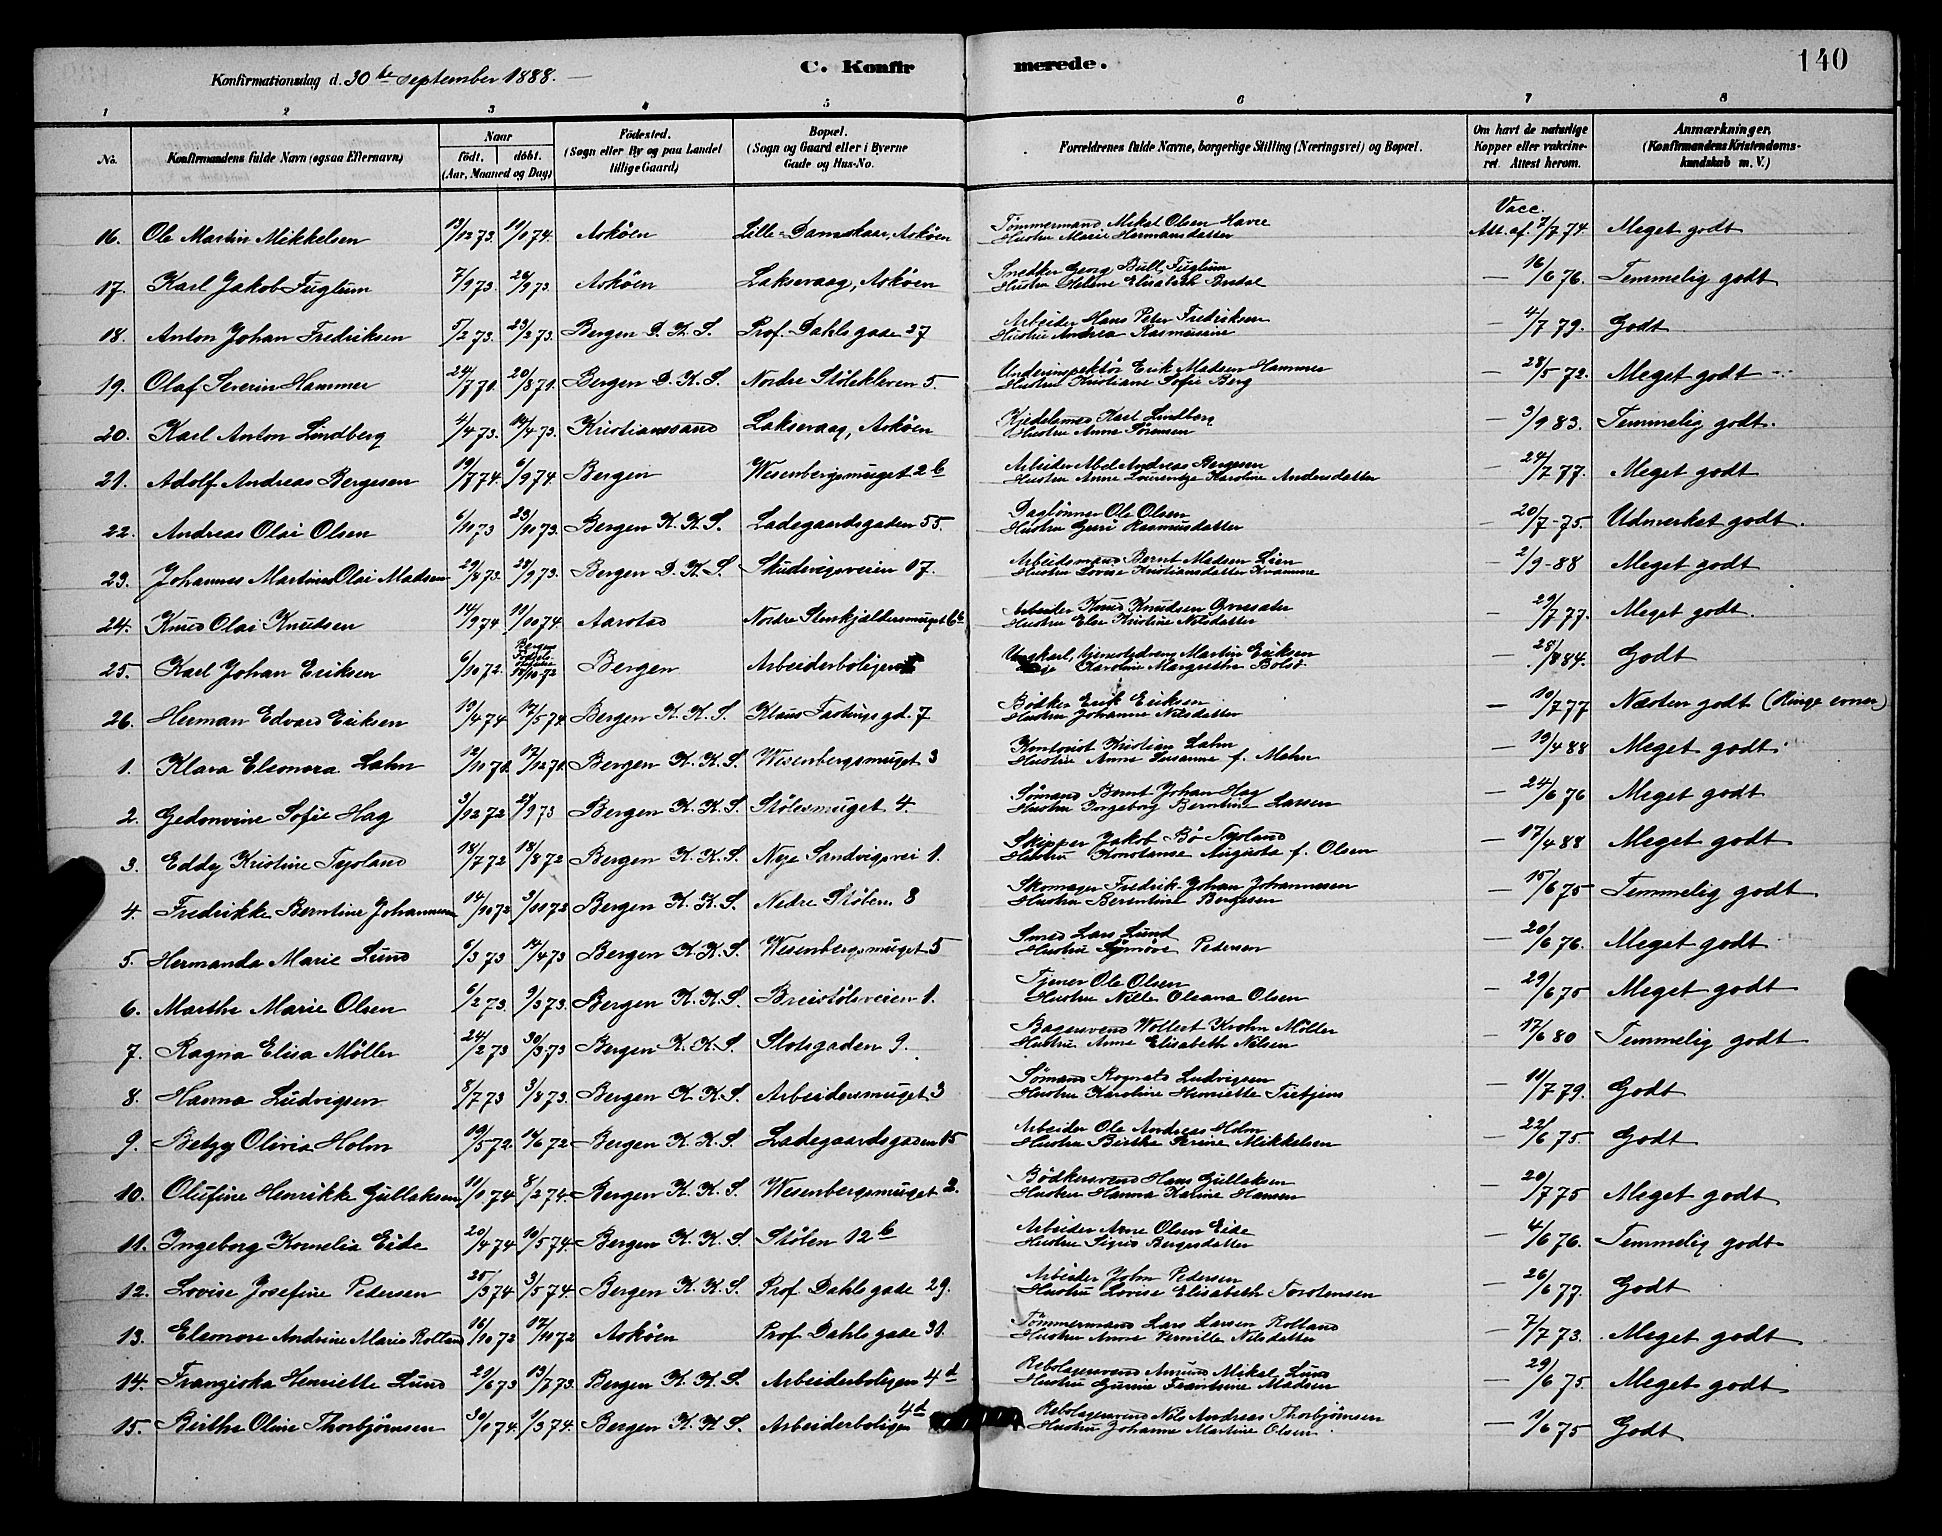 C. Konfirmerede. 140
Konfirmationsdag d. 30te september 1888.
1 2 3 4 5 6 7 8
No. Konfirmandens fulde Navn (ogsaa Efternavn) Naar födt. döbt. (Aar, Maaned og Dag) Födested. (Sogn eller By og paa Landet tillige Gaard) Bopæl. (Sogn og Gaard eller i Byerne Gade og Hus-No. Forældrenes fulde Navne, borgerlige Stilling (Næringsvei) og Bopæl. Om havt de naturlige Kopper eller vakcineret. Attest herom. Anmærkninger, (Konfirmandens Kristendomskundskab m. V.)
16. Ole Martin Mikkelsen 13/12 73. 11/1 74. Askøen Lille Damskaar, Askøen Tømmermand Mikal Olsen Havre Hustru Marie Hermansdatter Vacc. Att. af. 7/7 74. Meget godt
17. Karl Jakob Fuglum 7/9 73. 26/9 73 Askøen Laksevaag, Askøen Snedker Georg Bull Fuglum Hustru Helene Elisabeth Bredal — 16/6 76. Temmelig godt
18. Anton Johan Fredriksen 5/2 73. 23/2 73. Bergen D. K. S. Prof. Dahls gade 27 Arbeider Hans Peter Fredriksen Hustru Andrea Rasmusine — 4/7 79. Godt
19. Olaf Severin Hammer 24/7 71. 20/8 71. Bergen D. K. S. Nordre Stølekleven 5. Underinspektør Erik Madsen Hammer Hustru Kristiane Sofie Berg — 28/5 72. Meget godt
20. Karl Anton Lindberg 4/4 73. 14/4 73. Kristianssand Laksevaag, Askøen Kjedelsmed Karl Lindberg Hustru Anne Sørensen — 3/9 83. Temmelig godt.
21. Adolf Andreas Bergesen 19/7 74. 6/9 74. Bergen Wesenbergsmuget 2 b Arbeider Abel Andreas Bergesen Hustru Anne Lourentze Karoline Andersdatter — 24/7 77. Meget godt
22. Andreas Olai Olsen 6/10 73 23/10 73. Bergen K. K. S. Ladegaardsgaden 55. Dagløнner Ole Olsen Hustru Guri Rasmusdatter — 20/7 75. Udmerket godt.
23. Johannes Martinus Olai Madsen 29/8 73. 28/9 73. Bergen D. K. S. Skudevigsveien 17. Arbeidsmand Bernt Madsen Lien Hustru Lovise Kristiansdatter Kvamme — 2/9 88 Meget godt
24. Knud Olai Knudsen 14/9 74 11/10 74. Aarstad Nordre Stenkjeldersmuget 6 b Arbeider Knud Knudsen Hustru Else Kristine Nilsdatter — 29/7 77. Meget godt.
25. Karl Johan Eriksen 6/10 72. Bergen Arbeiderboligen Ungkarl, tjenestedreng Martin Eriksen Karoline Margrethe — 28/8 84. Godt
26. Herman Edvard Eriksen 13/4 74 17/5 74. Bergen K. K. S. Klaus Fastings gd. 7 Bødker Erik Eriksen Hustru Johanne Nilsdatter — 19/7 77 Næsten godt (Ringe evner)
1. Klara Eleonora Lahn 12/11 71. 17/12 71. Bergen K. K. S. Wesenbergsmuget 3 Kontorist Kristian Lahn Hustru Anne Susanne f. Mohn — 19/4 88 Meget godt.
2. Gedonvine Sofie Hag 3/12 72 28/9 73 Bergen K. K. S. Stølesmuget 4. Sømand Bernt Johan Hag Hustru Ingeborg Berntine Larsen — 24/6 76 Meget godt
3. Eddy Kristine Tysland 18/7 72 18/8 72 Bergen K. K. S. Nye Sandvigsvei 1. Skipper Jakob Bø Tysland Hustru Konstanse Augusta f. Olsen — 17/4 88 Meget godt
4. Fredrikke Berntine Johannesen 14/10 72 3/11 72 Bergen K. K. S. Nedre Stølen. 8 Skomager Fredrik Johan Johannesen Hustru Berentine Bergesen — 15/6 75 Temmelig godt
5. Hermanda Marie Lund 6/3 73 14/4 73 Bergen K. K. S. Wesenbergsmuget 5 Smed Lars Lund Hustru Synnøve Pedersen — 20/6 76. Meget godt
6. Marthe Marie Olsen 6/2 73. 9/3 73. Bergen K. K. S. Breistølsveien 1. Tjener Ole Olsen Hustru Nille Oleana Olsen — 29/6 75 Meget godt
7. Ragna Elisa Møller 24/2 73 30/3 73 Bergen K. K. S. Slotsgaden 9. Bagersvend Wollert Krohn Møller Hustru Anne Elisabeth Nilsen — 17/6 80 Temmelig godt
8. Hanna Ludvigsen 8/7 73 3/8 73. Bergen K. K. S. Arbeidersmuget 3 Sømand Ludvigsen Hustru Karoline Henriette Tietjens — 11/7 79. Godt
9. Betzy Olivia Holm 19/5 72. 14/6 72 Bergen K. K. S. Ladegaardsgaden 15 Arbeider Ole Andreas Holm Hustru Birthe Serine Mikkelsen — 22/6 75 Godt
10. Olufine Henrikke Gullaksen 11/1 74 8/2 74. Bergen K. K. S. Wesenbergsmuget 2. Bødkersvend Hans Gullaksen Hustru Hanna Karine Hansen — 20/7 75 Meget godt
11. Ingeborg Kornelia Eide 20/4 74 10/5 74. Bergen K. K. S. Stølen 12 b Arbeider Arne Olsen Eide Hustru Sigrid Bergesdatter — 4/6 76. Temmelig godt
12. Lovise Josefine Pedersen 25/3 74 3/5 74. Bergen K. K. S. Prof Dahls gade 29. Arbeider John Pedersen Hustru Lovise Elisabeth Torstensen — 26/6 77. Godt
13. Elenore Andrine Marie Rolland 16/10 72 17/11 72 Askøen Prof Dahls gade 31. Tømmermand Lars Larsen Rolland Hustru Anne Pernille Nilsdatter — 7/7 73. Meget godt
14. Franziska Henriette Lund 21/6 73 13/7 73. Bergen K. K. S. Arbeiderboligen 4 d Rebslagersvend Amund Mikal Lund Hustru Gurine Frantsine Madsen — 29/6 75. Meget godt
15. Birthe Oline Thorbjørnsen 30/1 74. 1/3 74. Bergen K. K. S. Arbeiderboligen 4 d Rebslagersvend Nils Andreas Thorbjørnsen Hustru Johanne Martine Olsen. — 1/6 75 Godt